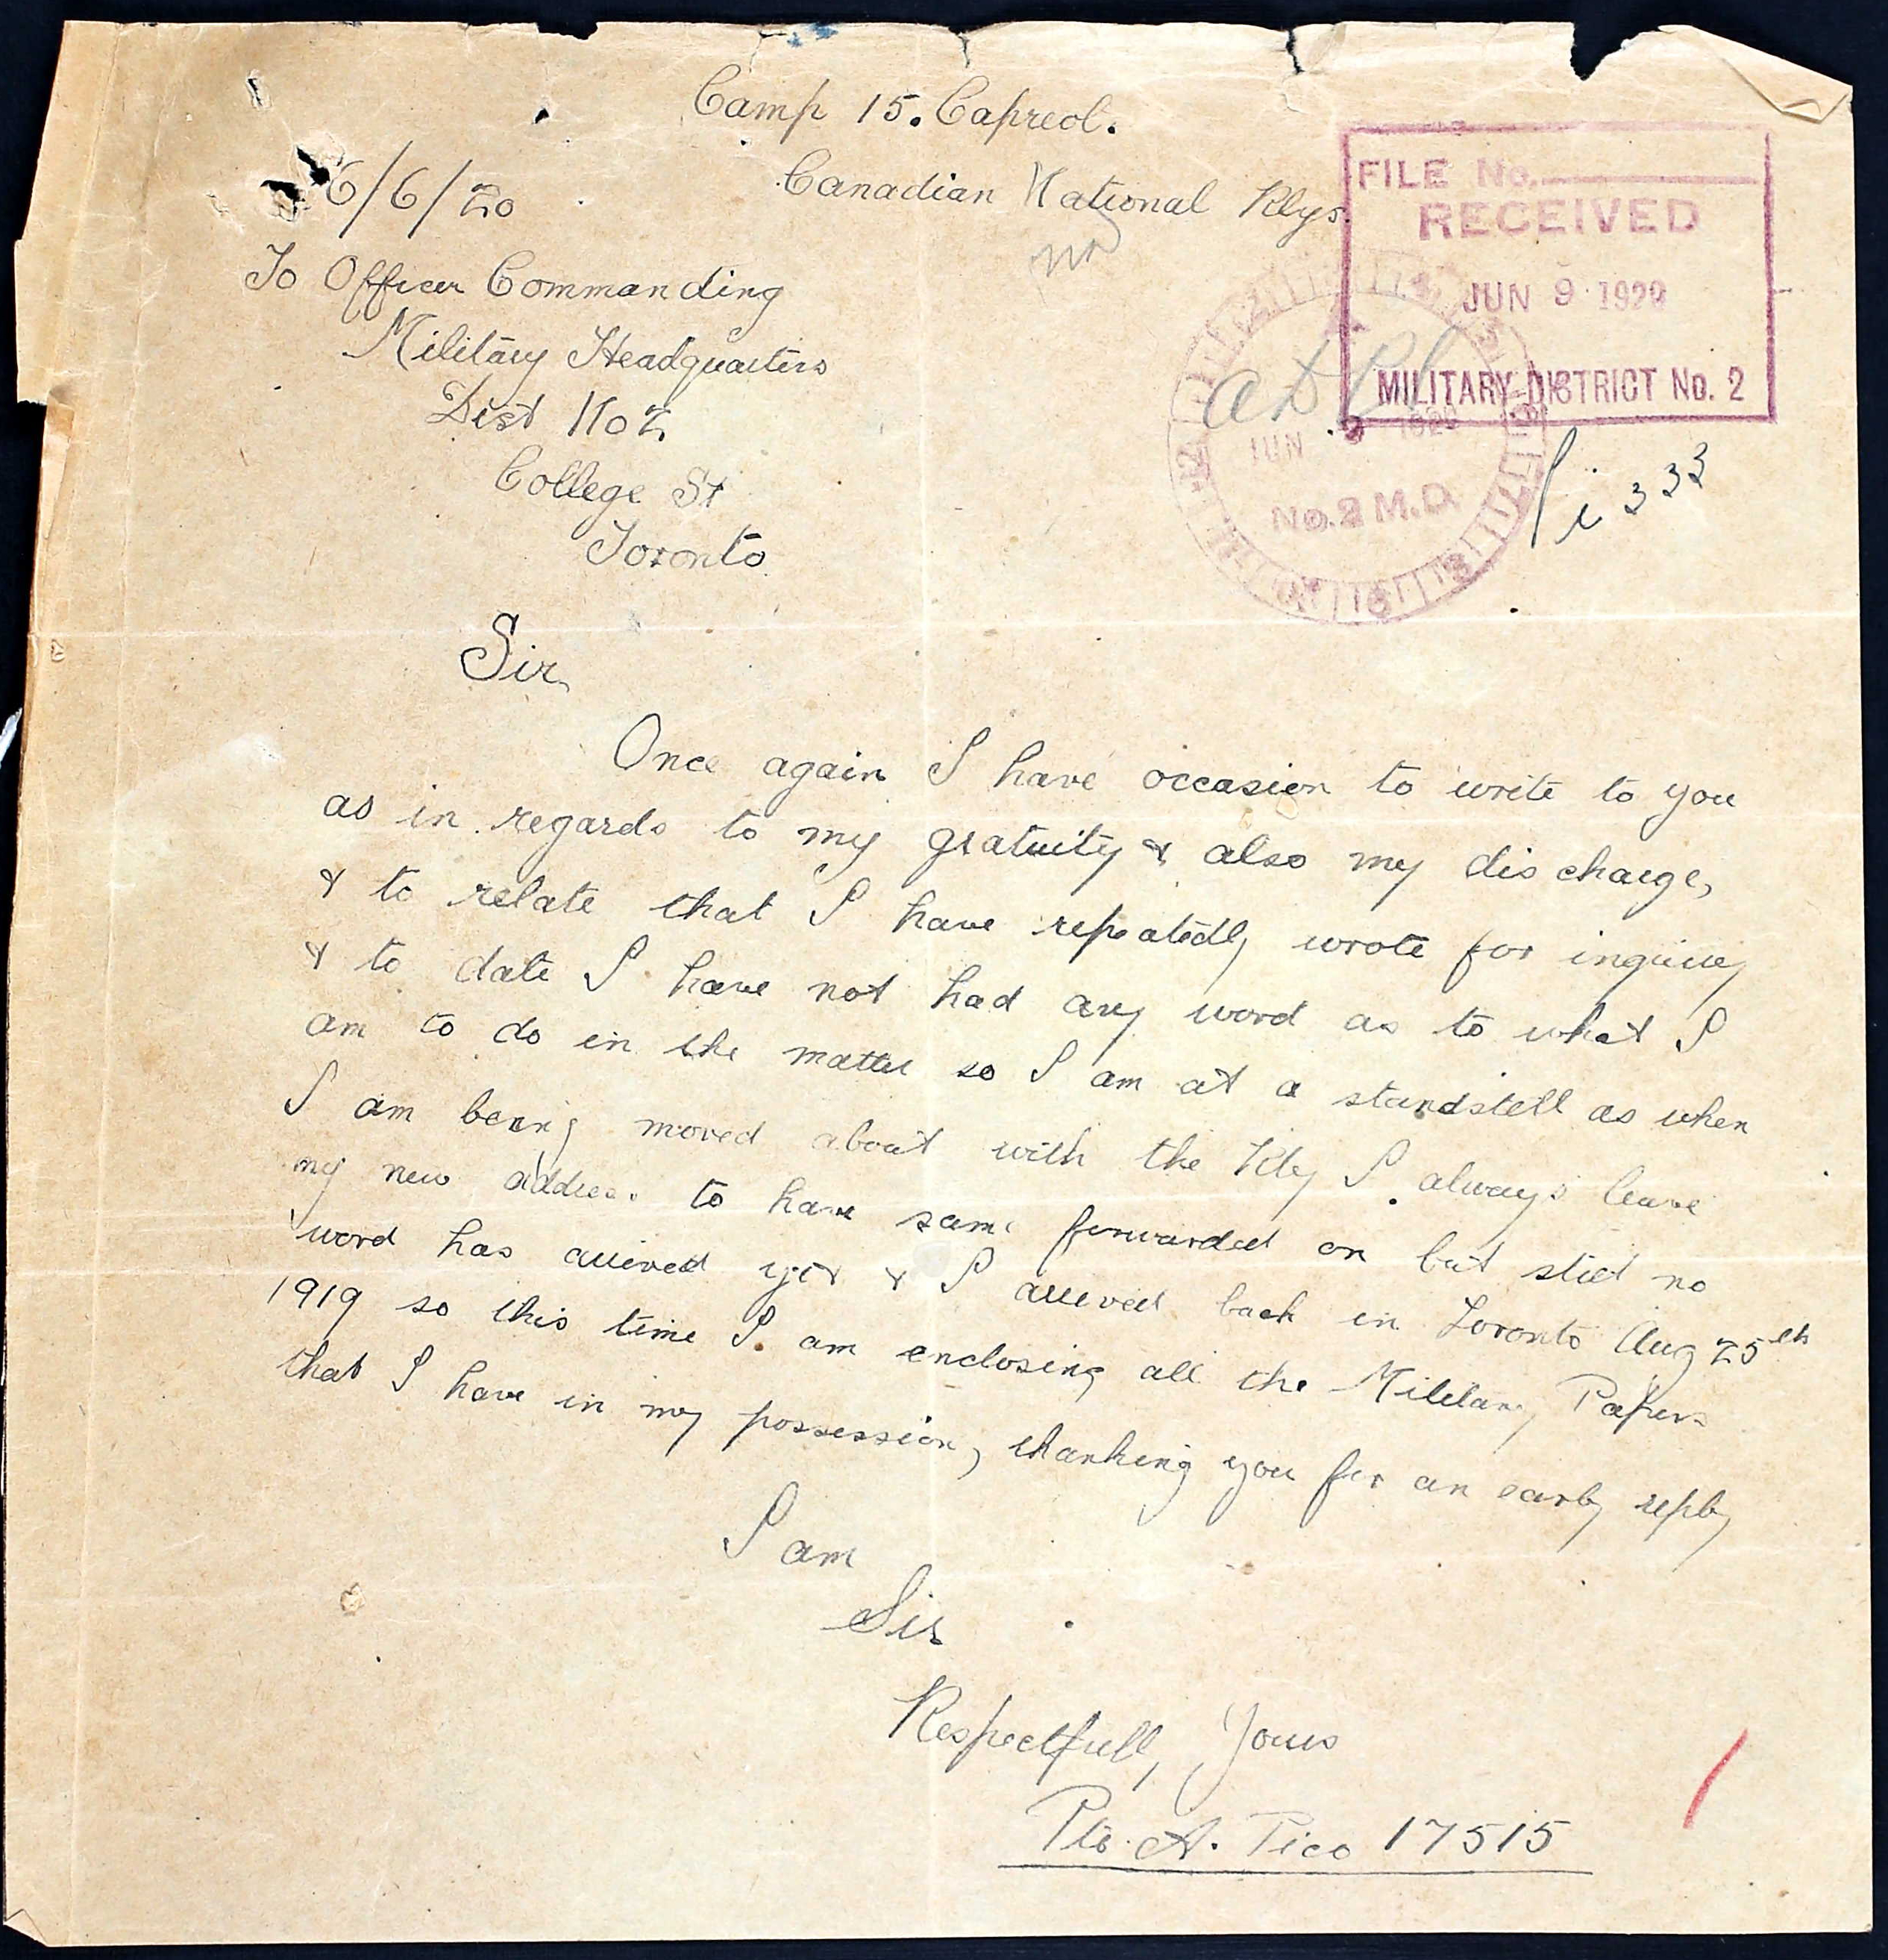 Camp 15. Capreol.
6/6/20
Canadian National Rlys.
FILE No.
RECEIVED
JUN 9 1920
MILITARY DISTRICT No. 2
To Officer Commanding
Military Headquarters
Dist No 2
College St
Toronto
JUN 1920
No. 2 M.D.
333
Sir,
Once again I have occasion to write to you
as in regards to my gratuity & also my discharge,
& to relate that I have repeatedly wrote for inquiry
& to date I have not had any word as to what I
am to do in the matter so I am at a standstill as when
I am being moved about with the Rly I always leave
my new address to have same forwarded on but still no
word has arrived yet & I arrived back in Toronto Aug 25th
1919 so this time I am enclosing all the Military Papers
that I have in my possession, thanking you for an early reply
I am
Sir
Respectfully Yours
Pte. A. Pico 17515